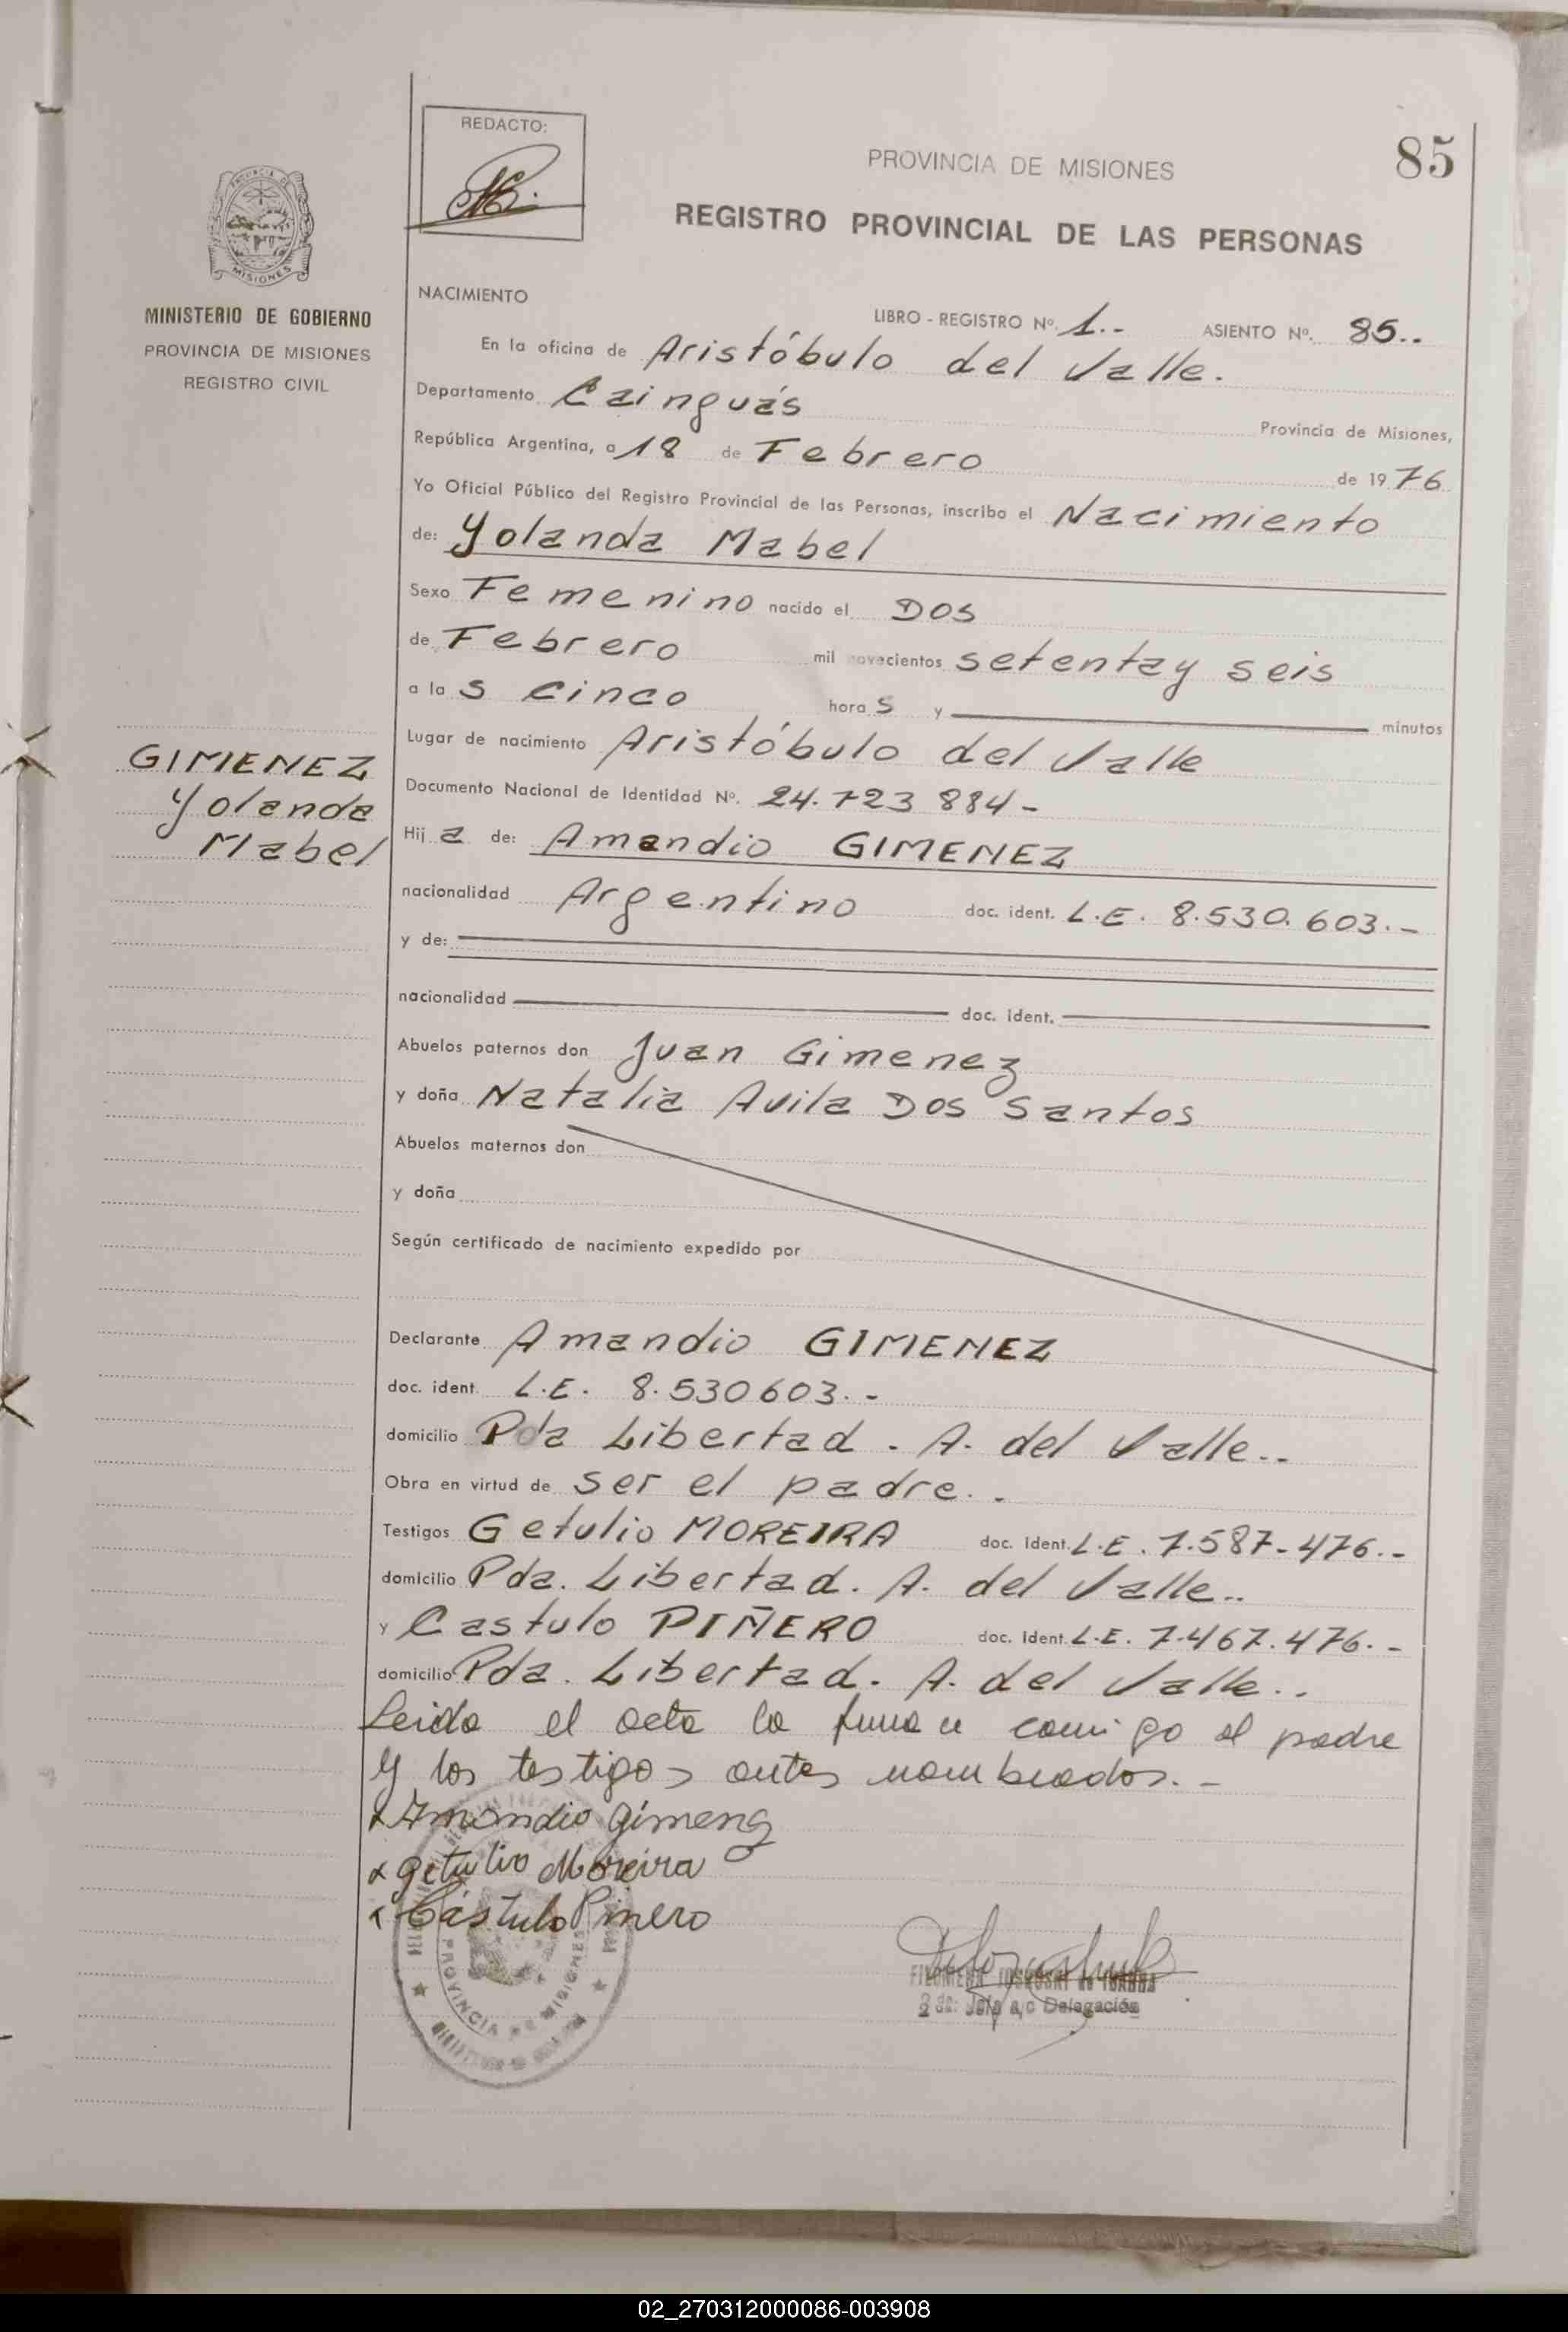 REDACTO:
PROVINCIA DE MISIONES
85
REGISTRO PROVINCIAL DE LAS PERSONAS
MISIONES
MINISTERIO DE GOBIERNO
PROVINCIA DE MISIONES
REGISTRO CIVIL
NACIMIENTO
LIBRO - REGISTRO Nº. 1.. ASIENTO Nº. 85..
En la oficina de Aristóbulo del Valle.
Departamento Cainguás Provincia de Misiones,
República Argentina, a 18 de Febrero de 1976
Yo Oficial Público del Registro Provincial de las Personas, inscribo el Nacimiento
de: Yolanda Mabel
Sexo Femenino nacido el Dos
de Febrero mil novecientos setenta y seis
a las cinco horas y minutos
Lugar de nacimiento Aristóbulo del Valle
GIMENEZ
Yolanda
Mabel
Documento Nacional de Identidad Nº. 24.723884-
Hija de: Amandio GIMENEZ
nacionalidad Argentino doc. ident. L.E. 8.530.603.-
y de:
nacionalidad doc. ident.
Abuelos paternos don Juan Gimenez
y doña Natalia Avila Dos Santos
Abuelos maternos don
y doña
Según certificado de nacimiento expedido por
Declarante Amandio GIMENEZ
doc. ident. L.E. 8.530603.-
domicilio Pda Libertad. A. del Valle..
Obra en virtud de ser el padre..
Testigos Getulio MOREIRA doc. Ident. L.E. 7.587-476.-
domicilio Pda. Libertad. A. del Valle..
y Castulo PIÑERO doc. Ident. L.E. 7.467.476.-
domicilio Pda. Libertad. A. del Valle..
Leida el acta la firma n comigo el padre
y los testigos antes nombrados.-
x Amandio Gimenz
x getulio Moreira
x Cástulo Pinero
PROVINCIA DE MISIONES
FILOMENA de
2da: Jefa a/c Delegación
02_270312000086-003908